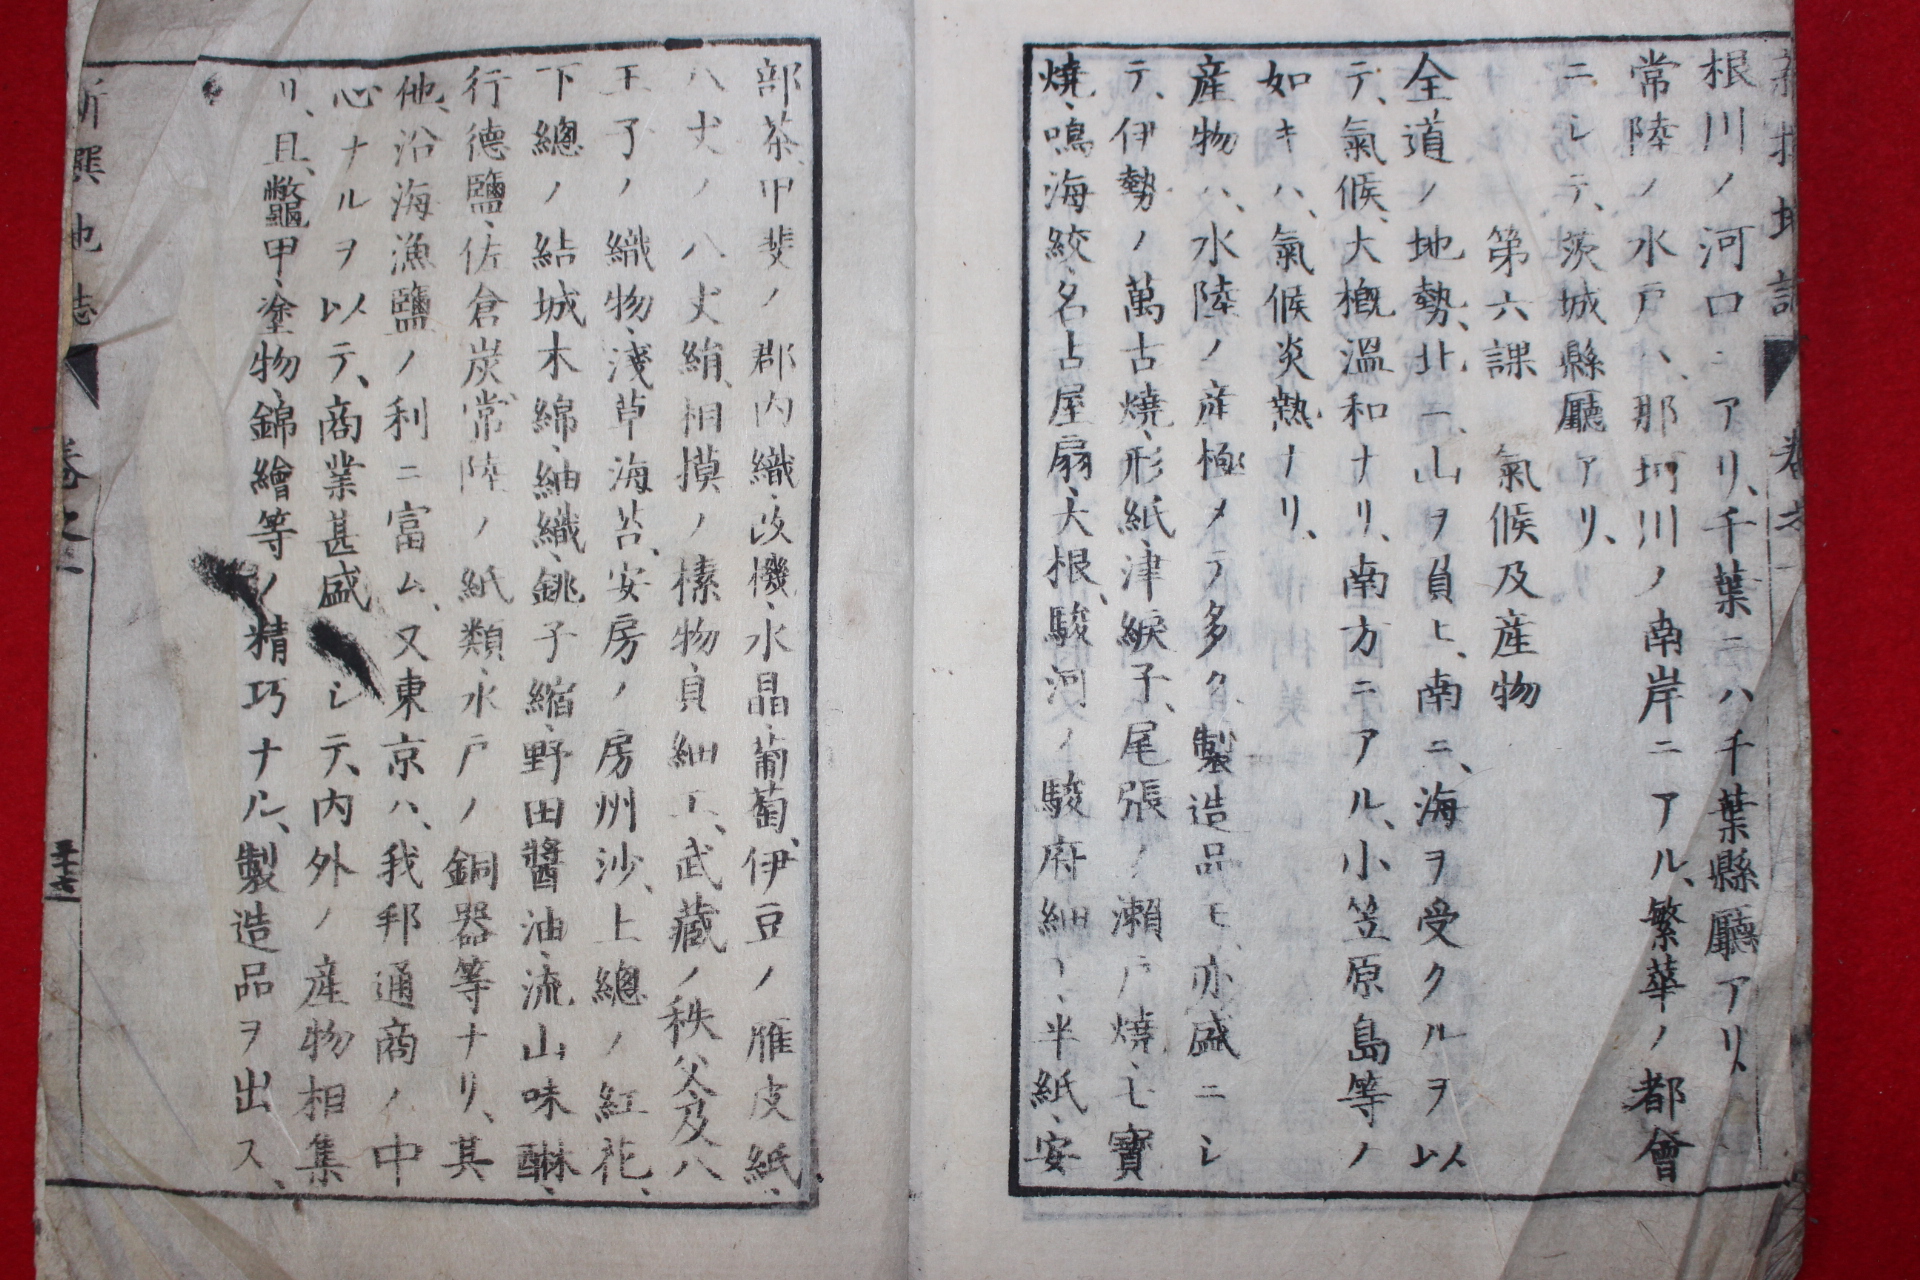 根川ノ河口ニアリ、千葉ニハ千葉縣廳アリ、
常陸ノ水戸ハ、那珂川ノ南岸ニアル、繁華ノ都會
ニシテ、茨城縣廳アリ、
第六課　氣候及産物
全道ノ地勢、北ニ、山ヲ負ヒ、南ニ、海ヲ受クルヲ以
テ、氣候、大槪溫和ナリ、南方ニアル、小笠原島等ノ
如キハ、氣候炎熱ナリ、
産物ハ、水陸ノ産極メテ多ク、製造品モ、亦盛ニシ
テ、伊勢ノ萬古燒、形紙、津綟子、尾張ノ瀨戸燒、七寶
燒、鳴海絞、名古屋扇、大根、駿河ノ駿府細工、半紙、安
部茶、甲斐ノ郡内織、改機、水晶、葡萄、伊豆ノ雁皮紙、
八丈ノ八丈絹、相摸ノ榛物、貝細工、武藏ノ秩父及八
王子ノ織物、淺草海苔、安房ノ房州沙、上總ノ紅花、
下總ノ結城木綿、紬織、銚子縮、野田醬油、流山味醂、
行德鹽、佐倉炭、常陸ノ紙類、水戸ノ銅器等ナリ、其
他、沿海漁鹽ノ利ニ富ム、又東京ハ、我邦通商ノ中
心ナルヲ以テ、商業甚盛ニシテ、内外ノ産物相集
リ、且、鼈甲、塗物、錦繪等ノ精巧ナル、製造品ヲ出ス、
新撰地誌　卷之二　三十六